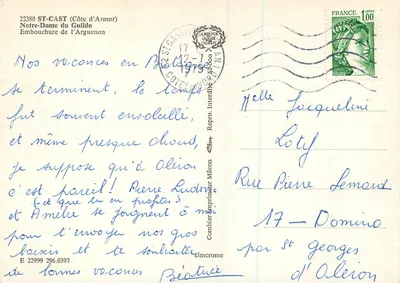 22380 ST-CAST (Côte d'Armor)
Notre-Dame du Guildo
Embouchure de l'Arguenon
Nos vacances en Bretagne
se terminent, le temps
fut souvent ensoleillé,
et même presque chaud,
je suppose qu'à Oléron
c'est pareil! Pierre Ludovic
(et que tu en profites)
et Amélie se joignent à moi
pour t'envoyer nos gros
baisers et te souhaiter
de bonnes vacances
Béatrice
E 22999 296.0397
Combier Imprimeur Mâcon
Repro. Interdite
17
1979
FRANCE
1,00
timcrome
Melle Jacqueline
Rue Pierre
17 - Domino
par St Georges
d'Oléron